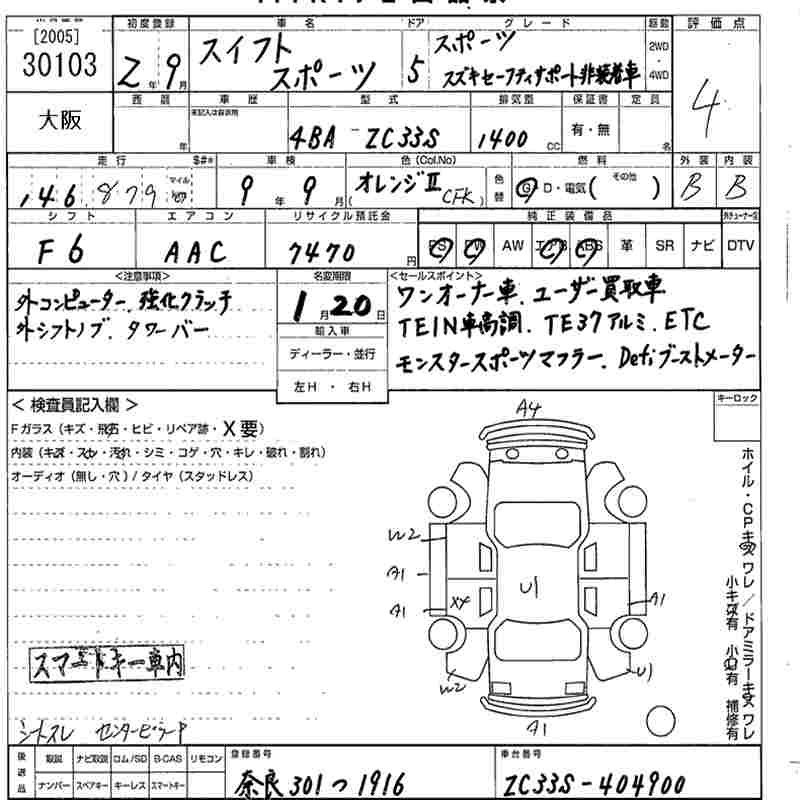 [2005] 初度登録 車名 ドア グレード 駆動 評価点
30103 Z年9月 スイフト スポーツ 5 スポーツ スズキセーフティサポート非装着車 2WD・4WD 4
大阪 西暦 年 車歴 未記入は自家用 型式 4BA-ZC33S 排気量 1400cc 保証書 有・無 定員 名
走行 $#* 車検 色(Col,No) 色替 燃料 外装 内装
146,879 マイル km 9年9月 (オレンジⅡ CFK) G・D・電気( その他 ) B B
シフト エアコン リサイクル預託金 純正装備品
F6 AAC 7470円 PS PW AW エアB ABS 革 SR ナビ DTV
<注意事項> 名変期限 <セールスポイント>
外コンピューター、強化クラッチ
外シフトノブ、タワーバー
1月20日
輸入車
ディーラー・並行
左H・右H
ワンオーナー車、ユーザー買取車
TEIN車高調、TE37アルミ、ETC
モンスタースポーツマフラー、Defiブーストメーター
<検査員記入欄> キーロック
Fガラス(キズ・飛石・ヒビ・リペア跡・X要)
内装(キズ・スレ・汚れ・シミ・コゲ・穴・キレ・破れ・割れ)
オーディオ(無し・穴)/タイヤ(スタッドレス)
A4
W2
A1
A1
X4
U1
A1
W2
U1
A1
ホイル・CPキズ ワレ/ドアミラーキズ ワレ
小キズ有 小凹有 補修有
スマートキー車内
シートスレ センターピラーP
後送品 取説 ナビ取説 ロム/SD B-CAS リモコン 登録番号 車台番号
ナンバー スペアキー キーレス スマートキー 奈良301つ1916 ZC33S-404900